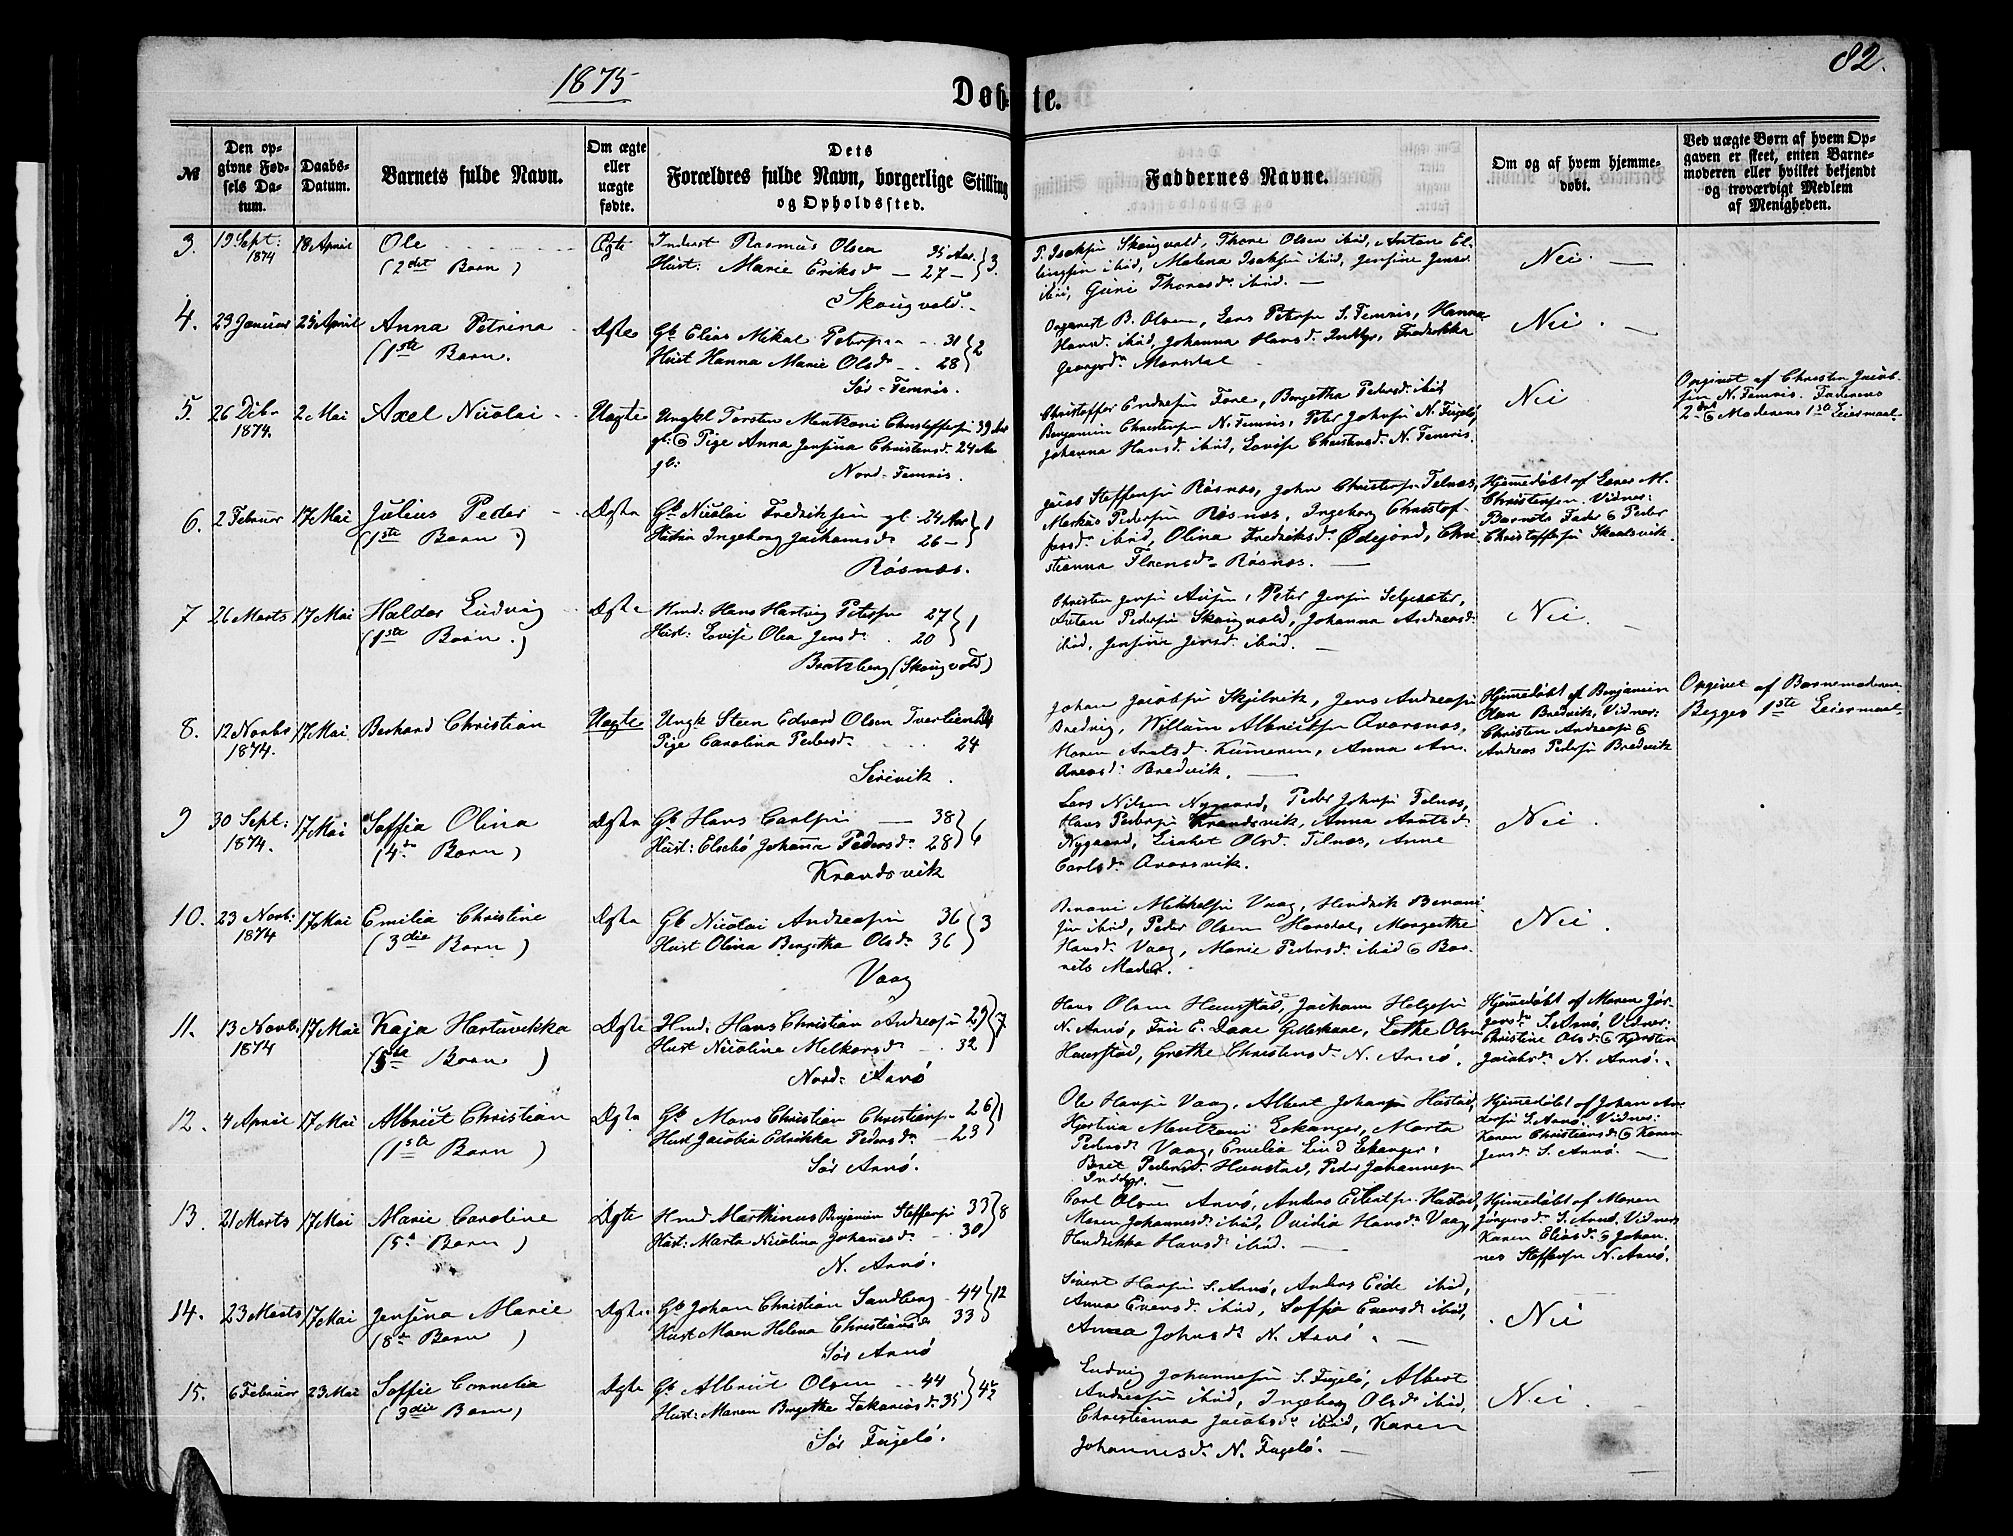 1875
Døbte.
82.
№
Den opgivne Fødsels Datum.
Daabs-Datum.
Barnets fulde Navn.
Om ægte eller uægte fødte.
Dets Forældres fulde Navn, borgerlige Stilling og Opholdssted.
Faddernes Navne.
Om og af hvem hjemmedøbt.
Ved uægte Børn af hvem Opgaven er skeet, enten Barnemoderen eller hvilket bekjendt og troværdigt Medlem af Menigheden.
3. 19 Sept: 1874 18 April Ole
(2det Barn)
Ægte
Inderst Rasmus Olsen 35 Aar
Hust: Marie Eriksd. 27 3.
Skougvold.
P. Isaksen Skougvold, Thore Olsen ibid, Anton El-
lingsen ibid, Malena Isaksen ibid, Jensine Jensd.
ibid, Guri Thoresd. ibid.
Nei.
4. 29 Januar 25 April Anna Petrina
(1ste Barn.
Ægte
Gb. Elias Mikal Petersen 31
Hust Hanna Marie Olsd. 28 2
Sør-Femris.
Organist B. Olsen, Lars Petersen S. Femris, Hanna
Hansd. ibid, Johanna Hansd. Indtyr, Fredrikka
Georgsd. Mårsdal
Nei.
5. 26 Deb. 1874. 2 Mai Axel Nicolai
Uægte
Ungkl Torsten Mentzoni Christoffersen 39 Aar
gl: & Pige Anna Jensina Christensd. 24 Aar
gl:
Nord-Femris.
Christoffer Endresen Fore, Bergetha Pedersd. ibid
Benjamin Christensen N. Femris, Peter Johnsen N. Fugelø,
Johanna Hansd. ibid, Lovise Christensd. N. Femris.
Nei
Opgivet af Christen Jacob-
sen N. Femris. Faderens
2det & Moderens 1ste Leiermaal.
6. 2 Februar 17 Mai Julius Peder
(1ste Barn)
Ægte
Gb. Nicolai Fredriksen gl. 24 Aar
Hustru Ingeborg Joachimsd. 26 1
Røsnæs.
Markus Pedersen Røsnæs, Ingeborg Christof-
fersd. ibid, Olina Fredriksd. Ødejord, Chri-
stianna Floensd. Røsnæs.
Hjemmedøbt af Lærer M.
Christensen. Vidner:
Barnets Fader & Peder
Christoffersen Skaalsvik.
7 26 Marts 17 Mai Haldor Ludvig
(1ste Barn.)
Ægte
Hmd: Hans Hartvig Petersen 27
Hust: Lovise Olea Jensd. 20 1
Bratzberg (Skougvold)
Anton Pedersen Skougvold, Johanna Andreasd.
ibid, Jensine Jensd. ibid.
Nei.
8. 12 Novbr 1874. 17 Mai Berhard Christian
Uægte
Ungk Steen Edvard Olsen Tverlien 24
Pige Carolina Pedersd. 24
Seivik.
Johan Jacobsen Skjelvik, Jens Andreasen
Bredvig, Willum Albreitsen Avarsnæs,
Maren Arntsd. Kumeren, Anna An-
dreasd. Bredvik.
Hjemmedøbt af Benjamin
Olsen Bredvik, Vidner:
Christen Andreasen &
Andreas Pedersen Bredvik
Opgivet af Barnemoderen.
Begges 1ste Leiermaal.
9 30 Sept: 1874. 17 Mai Soffia Olina
(4de Barn)
Ægte
Gb Hans Carlsen 38
Hust: Elsebø Johanna Pedersd. 28 6
Krandsvik
Lars Nilsen Nygaard, Peder Johnsen Telnæs,
Hans Pedersen Krandsvik, Anna Arntsd.
Nygaard, Lisabet Olsd. Telnæs, Anne
Carlsd. Avarsvik.
Nei.
10. 23 Novb: 1874 17 Mai Emilia Christine
(3die Barn)
Ægte
Gb Nicolai Andreasen 36
Hust Olina Bergitha Olsd. 36 3
Vaag
Benoni Mikkelsen Vaag, Hendrik Benoni-
sen ibid, Peder Olsen Horsdal, Margrethe
Hansd. Vaag, Marie Pedersd. ibid & Bar-
nets Moder.
Nei.
11. 13 Novb. 1874 17 Mai Kaja Hartvikka
(5te Barn)
Ægte
Hmd. Hans Christian Andreasen 29
Hust Nicoline Melkersd. 32 7
Nord-Arnø
Hans Olsen Haustad, Joakim Helgesen
N. Arnø, Frue C. Daae Gildeskaal, Lotke Olsen
Haustad, Grethe Christensd. N. Arnø.
Hjemmedøbt af Maren Jør-
gensd. S. Arnø. Vidner:
Christine Olsd. & Kjersten
Jacobsd. N. Arnø.
12. 4 April 17 Mai Albriet Christian
(1ste Barn)
Ægte
Gb Mons Christian Christiansen 26
Hust Jacobia Edrikka Pedersd. 23 1
Sør Arnø.
Ole Hansen Vaag, Albert Johansen Hustad,
Hjertina Mentzoni Ekanger, Marta
Pedersd. Vaag, Emelia Lind Ekanger,
Beret Pedersd. Haustad, Peder Johannesen
Indtyr.
Hjemmedøbt af Johan An-
dersen S. Arnø. Vidner:
Karen Christiansd. & Karen
Jensd. S. Arnø.
13. 21 Marts 17 Mai Marie Caroline
(5te Barn)
Ægte
Hmd Marthinus Benjamin Steffensen 33
Hust: Marta Nicolina Johannesd. 30 8
N. Arnø.
Carl Olsen Arnø, Anders Ellertsen Hustad,
Maren Johannesd. ibid, Ovidia Hansd. Vaag,
Hendrikka Hansd. ibid.
Hjemmedøbt af Maren
Jørgensd. S. Arnø. Vidner
Karen Eliasd. & Johan-
nes Steffensen N. Arnø.
14. 23 Marts 17 Mai Jensina Marie
(8de Barn)
Ægte
Gb Johan Christian Sandberg 44
Hust Maren Helena Christiansd. 33 12
Sør Arnø
Sivert Hansen S. Arnø, Anders Eide ibid,
Anna Evensd. ibid, Soffia Evensd. ibid,
Anna Johnsd. N. Arnø.
Nei
15. 6 Februar 23 Mai Soffie Cornelia
(3die Barn)
Ægte
Gb Albriet Olsen 44
Hust: Maren Bergethe Zakariasd. 35
Sør Fugelø.
Ludvig Johannesen S. Fugelø, Albert
Andreasen ibid, Ingeborg Olsd. ibid,
Christianna Jacobsd. ibid, Karen
Johannesd. N. Fugelø.
Nei.